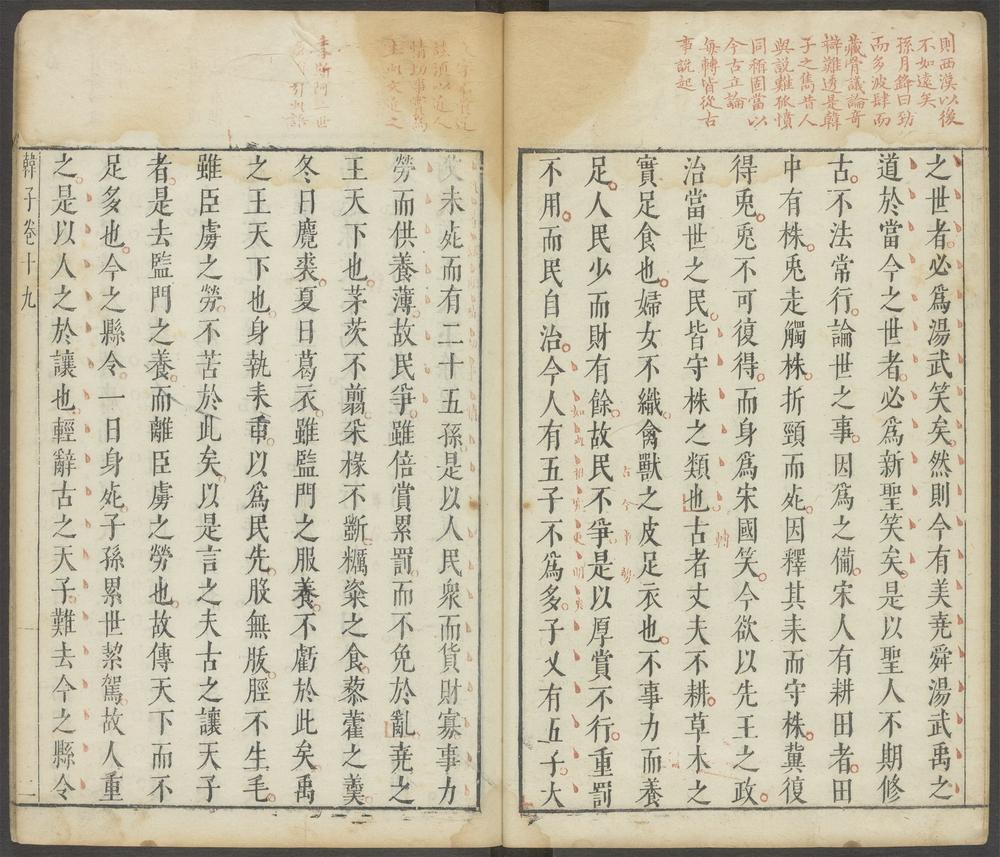 則西漢以後
不如遠矣
孫月鋒曰勁
而多波肆而
藏骨議論奇
辯難透是韓
子之雋昔人
與說難孤憤
同稱固當以
今古立論
每轉皆從古
事說起
之世者必爲湯武笑矣然則今有美堯舜湯武禹之
道於當今之世者必爲新聖笑矣是以聖人不期修
古不法常行論世之事因爲之備宋人有耕田者田
中有株兎走觸株折頸而死因釋其耒而守株冀復
得兎兎不可復得而身爲宋國笑今欲以先王之政
治當世之民皆守株之類也古者丈夫不耕草木之
轉
實足食也婦女不織禽獸之皮足衣也不事力而養
古今事勢
足人民少而財有餘故民不爭是以厚賞不行重罰
如此相
更明
不用而民自治今人有五子不爲多子又有五子大
李斯阿二世
父未死而有二十五孫是以人民衆而貨財寡事力
勞而供養薄故民爭雖倍賞累罰而不免於亂堯之
王天下也茅茨不翦采椽不斲糲粢之食藜藿之羹
冬日麑裘夏日葛衣雖監門之服養不虧於此矣禹
之王天下也身執耒臿以爲民先股無胈脛不生毛
雖臣虜之勞不苦於此矣以是言之夫古之讓天子
者是去監門之養而離臣虜之勞也故傳天下而不
足多也今之縣令一日身死子孫累世絜駕故人重
之是以人之於讓也輕辭古之天子難去今之縣令
韓子卷十九 二